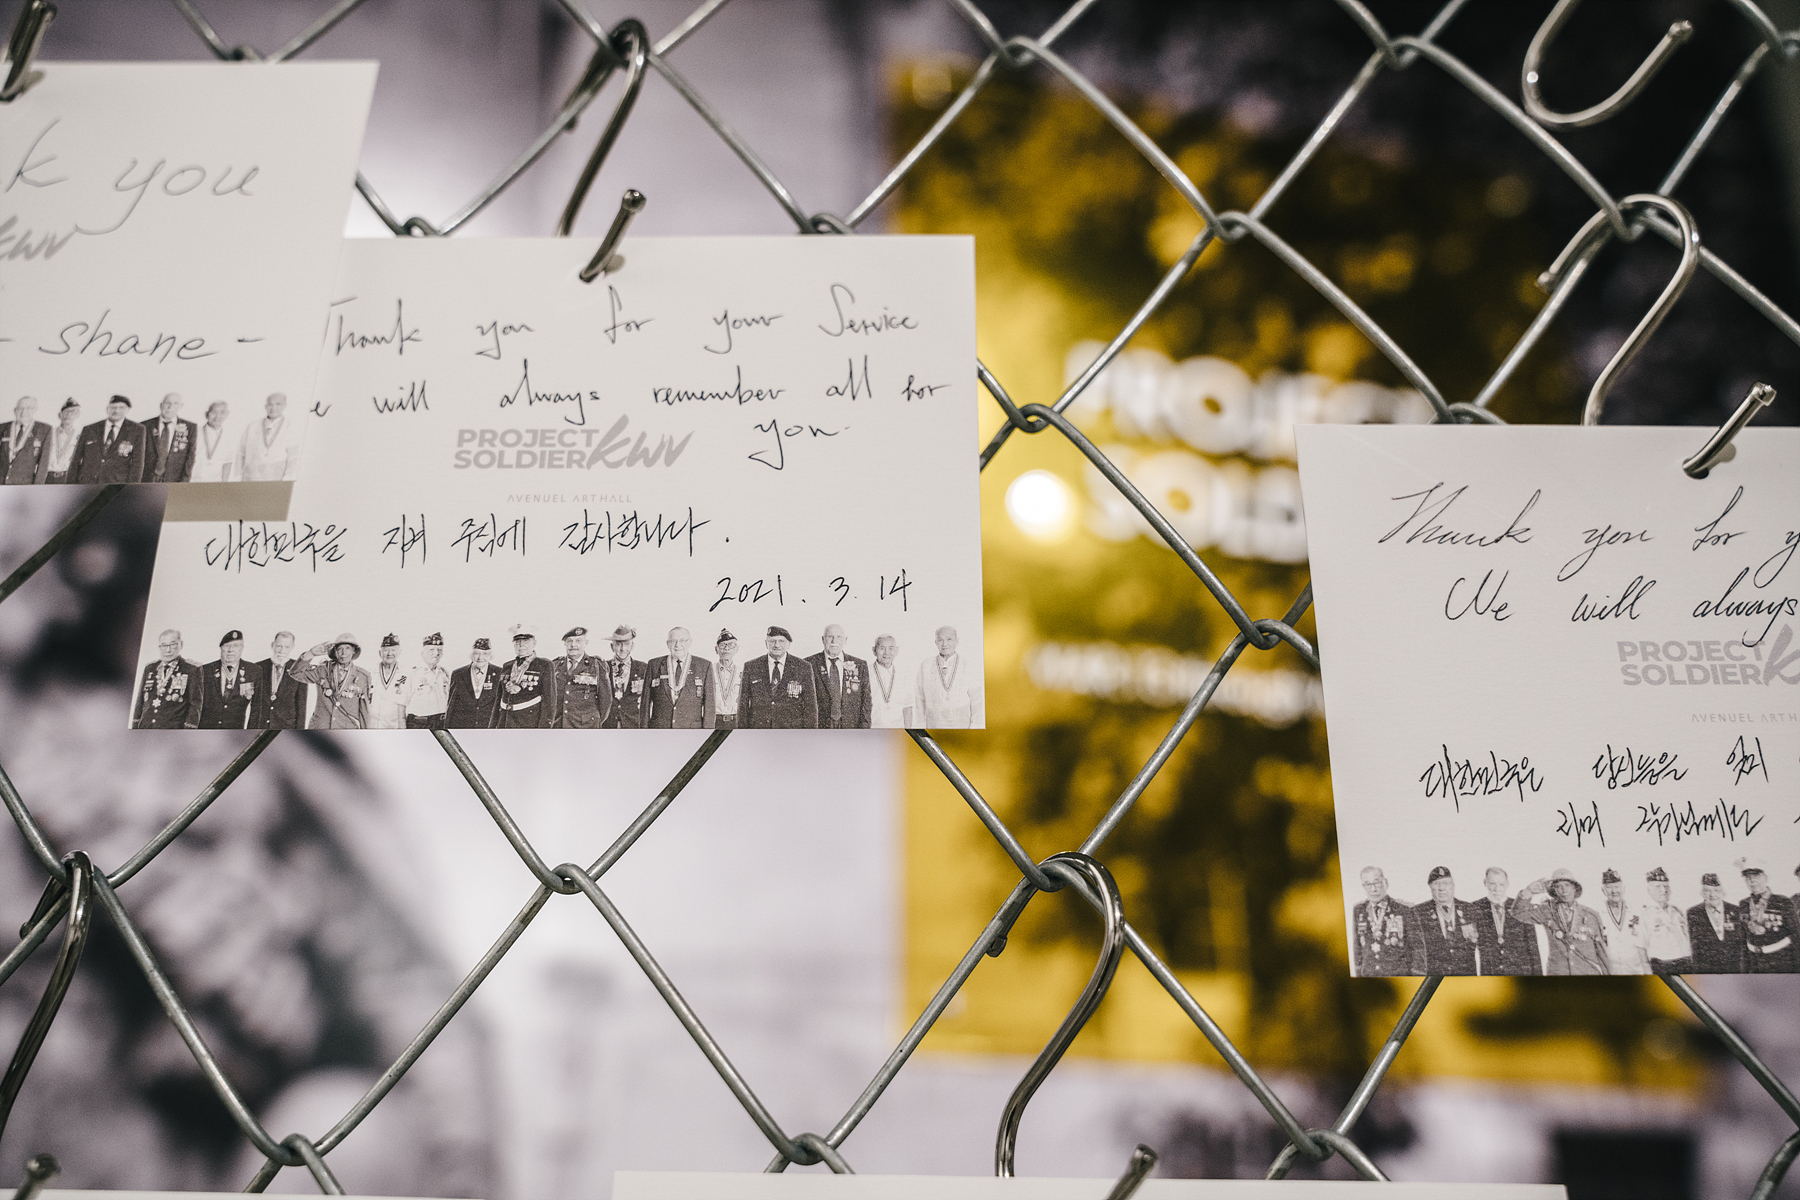 k you
kwv
- shane -
Thank you for your Service
e will always remember all for
you.
PROJECT
SOLDIER KWV
AVENUEL ARTHALL
대한민국을 지켜 주심에 감사합니다.
2021. 3. 14
PROJECT
SOL
Thank you for y
We will always
PROJECT
SOLDIER K
AVENUEL ARTH
대한민국은 당신들을 잊지